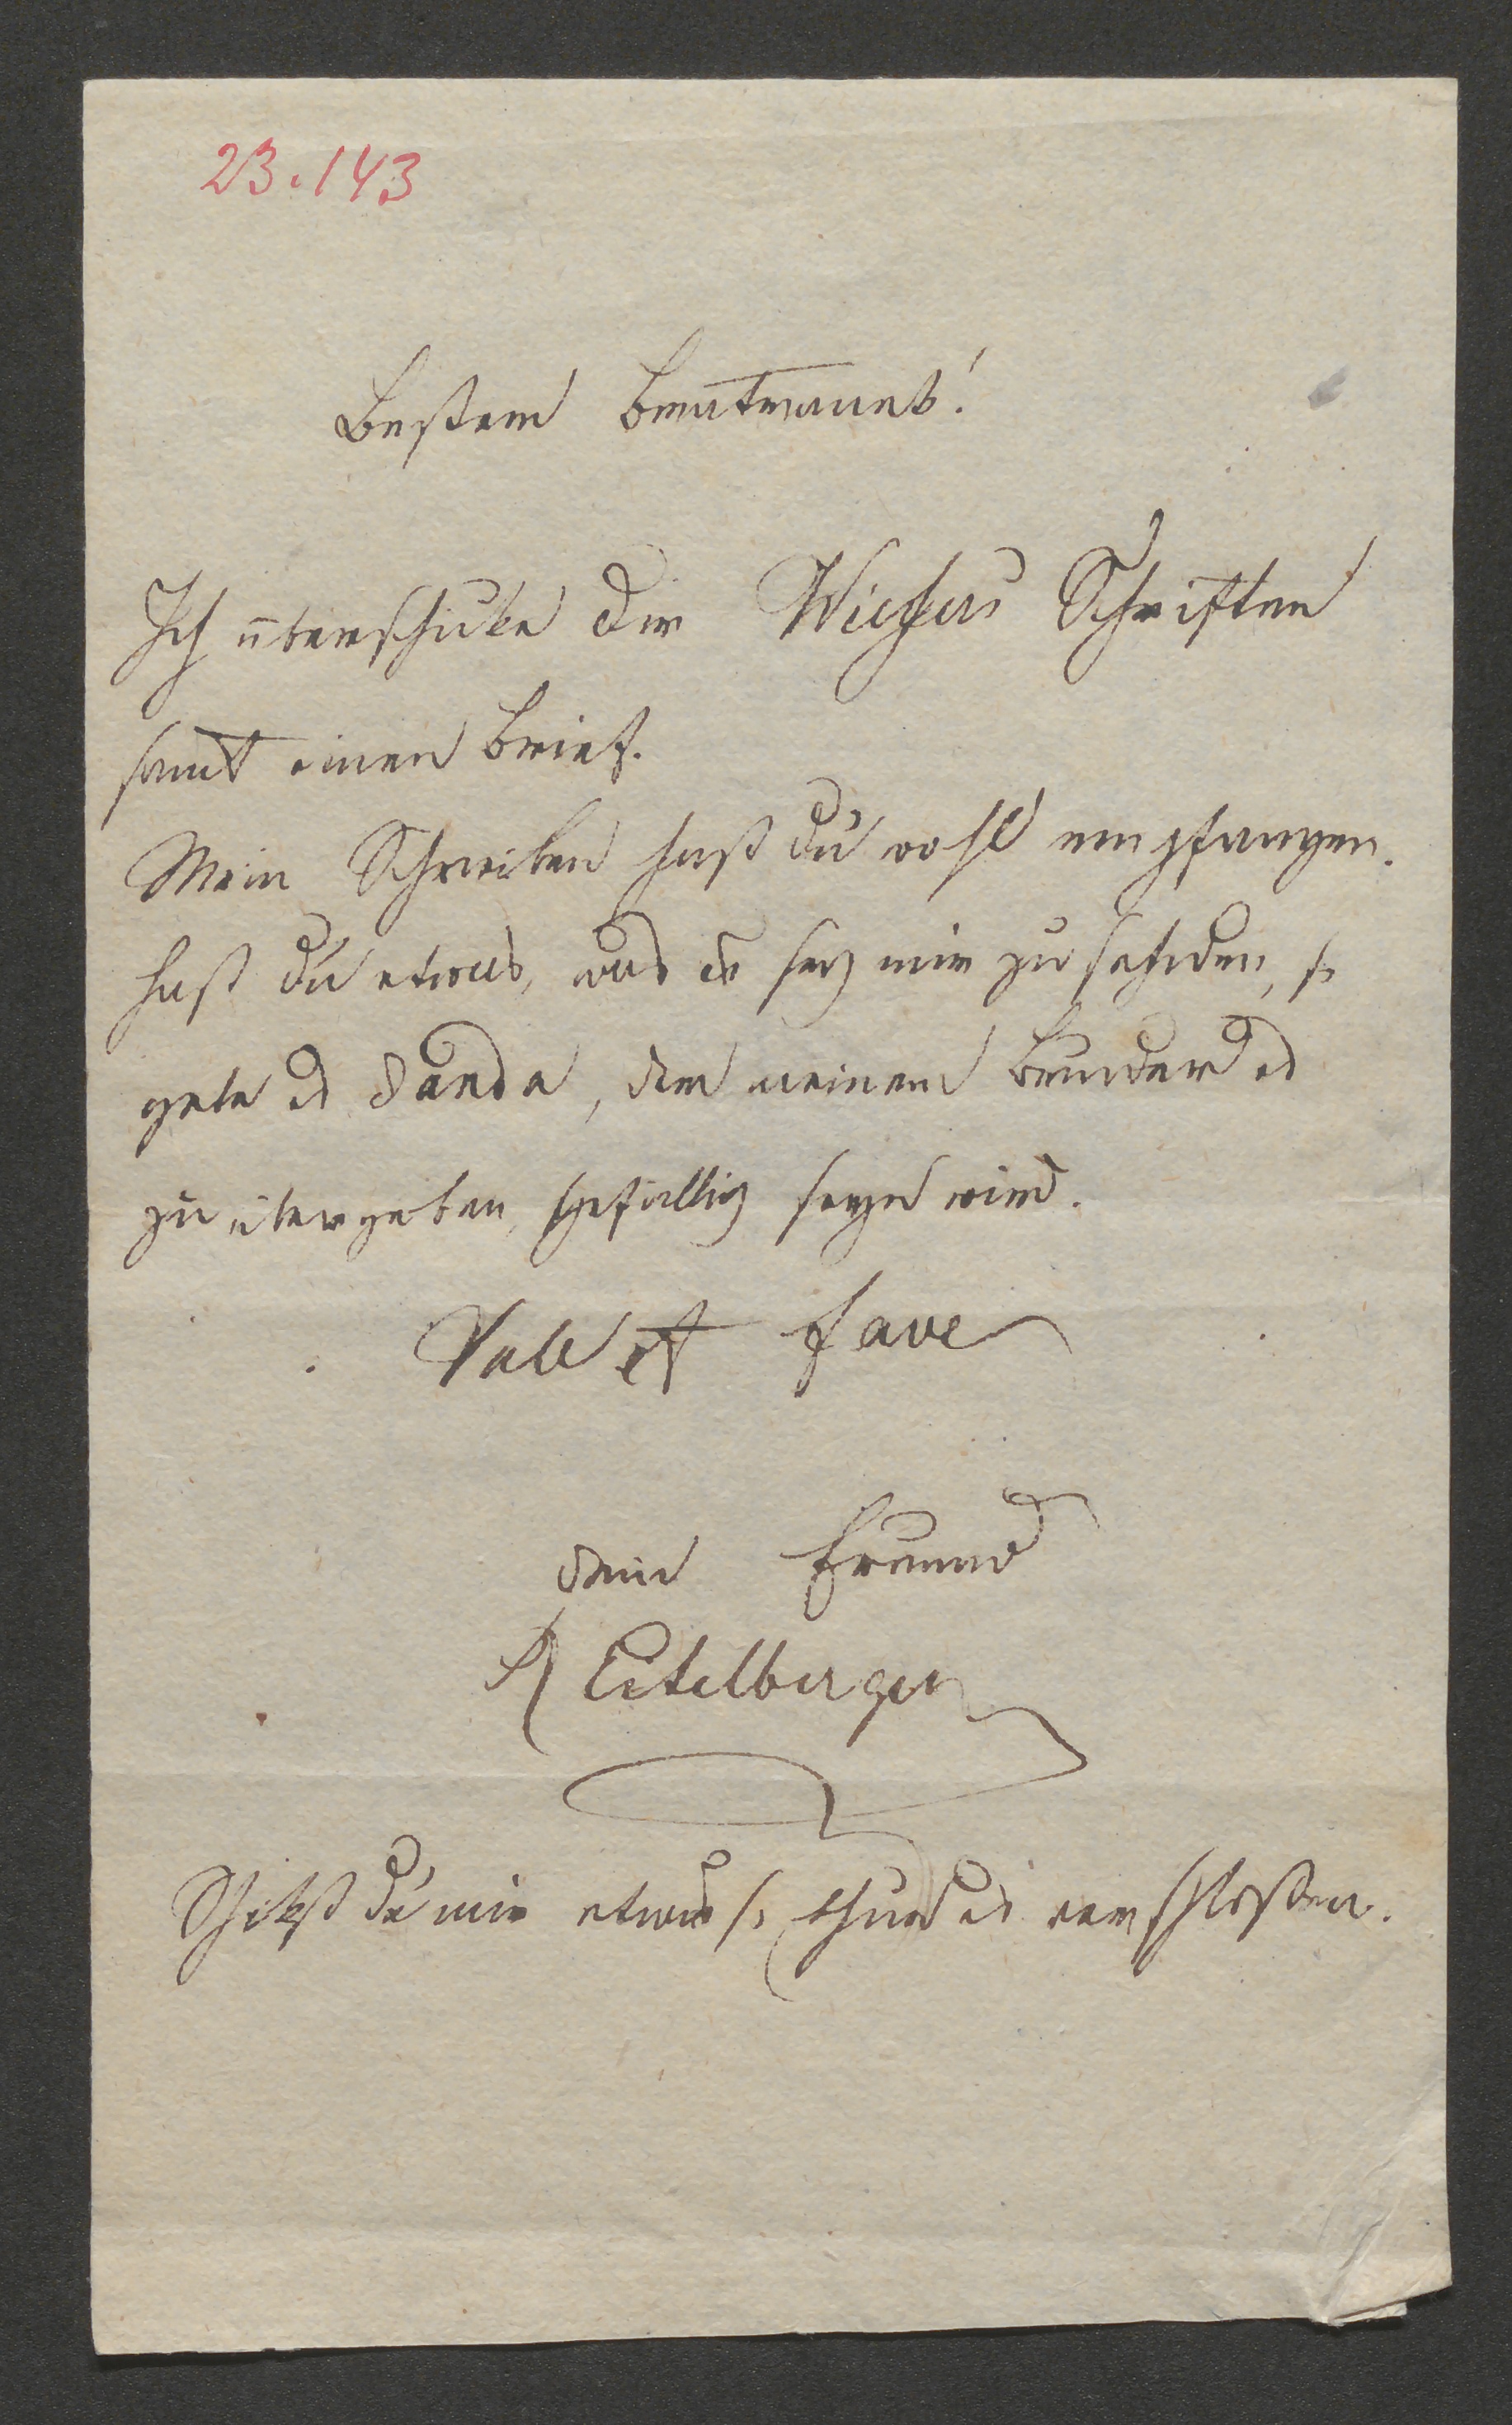 23.143
Bester
Ich überschicke Dir Schriften
samt einen Brief.
Mein Schreiben hast du wohl empfangen.
Hast du etwas, was es sey mir zu senden, so
gebe es Danda, der meinem Bruder es
zu übergeben, gefällig seyn wird.
Vale et fave
Dein Freund
R Eitelberger
Schikst du mir etwas so thue es verschlossen.